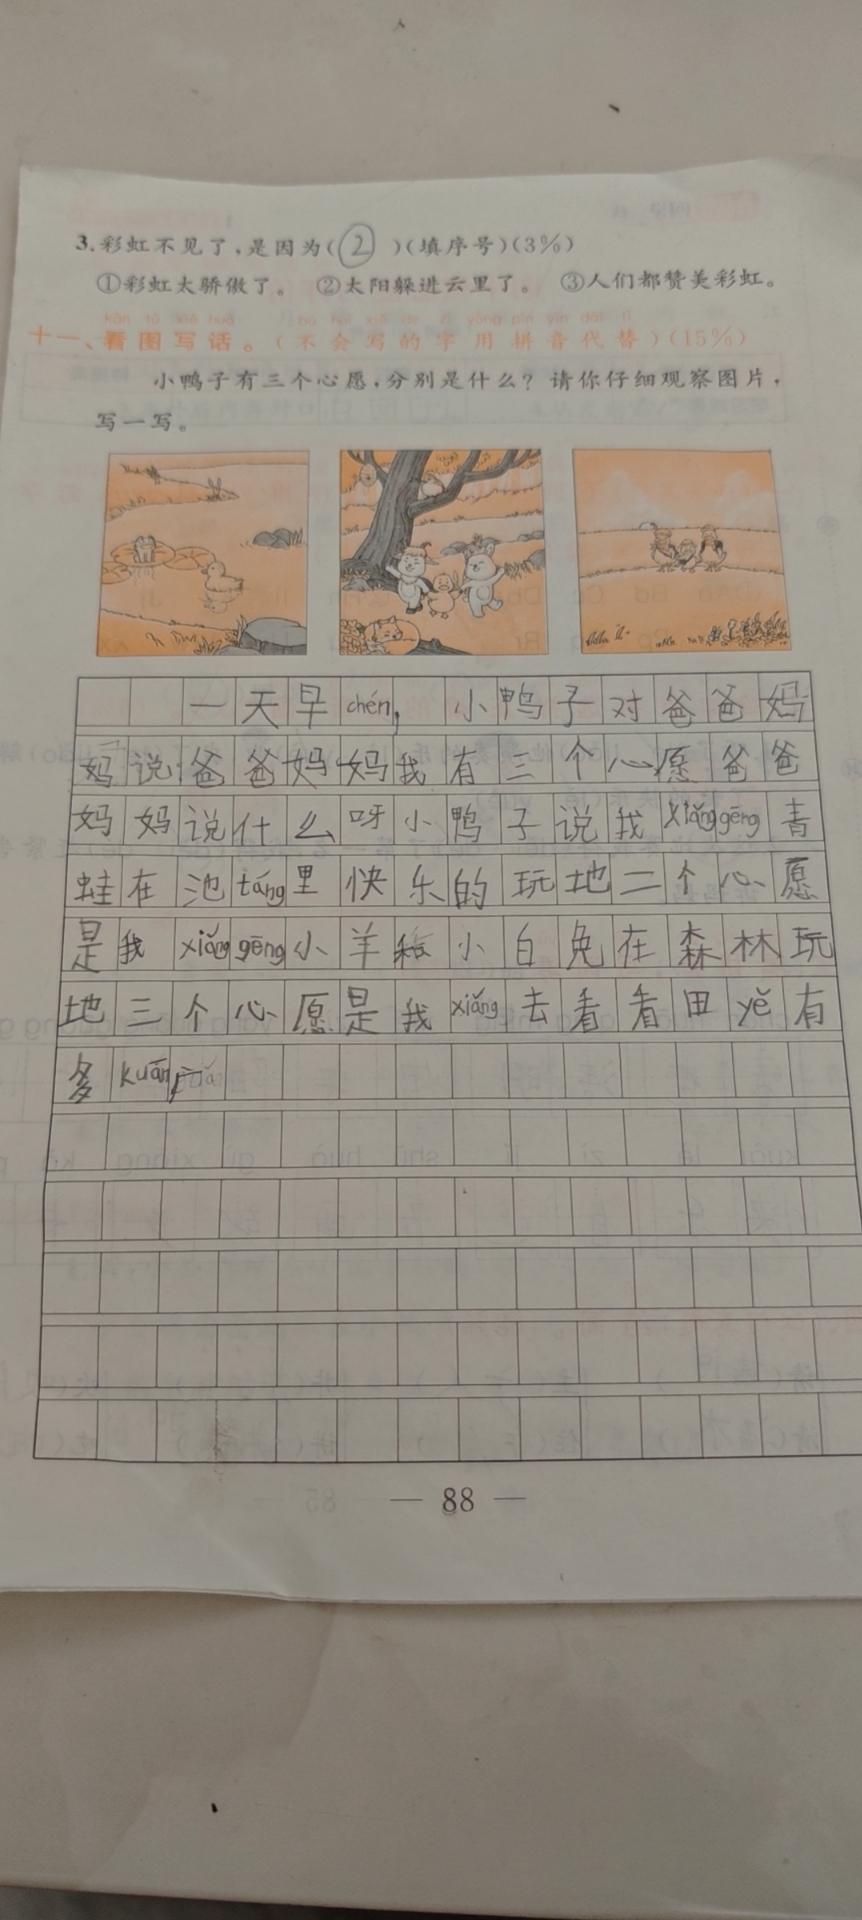 3.彩虹不见了,是因为(②)(填序号)(3%)
①彩虹太骄傲了。 ②太阳躲进云里了。 ③人们都赞美彩虹。
kàn tú xiě huà bú huì xiě de zì yòng pīn yīn dài tì
十一、看图写话。(不会写的字用拼音代替)(15%)
小鸭子有三个心愿,分别是什么?请你仔细观察图片,
写一写。
一天早chén,小鸭子对爸爸妈
妈说爸爸妈妈我有三个心愿爸爸
妈妈说什么呀小鸭子说我xiǎng gēng青
蛙在池táng里快乐的玩地二个心愿
是我xiǎng gēng小羊和小白兔在森林玩
地三个心愿是我xiǎng去看看田yě有
多kuān广
— 88 —